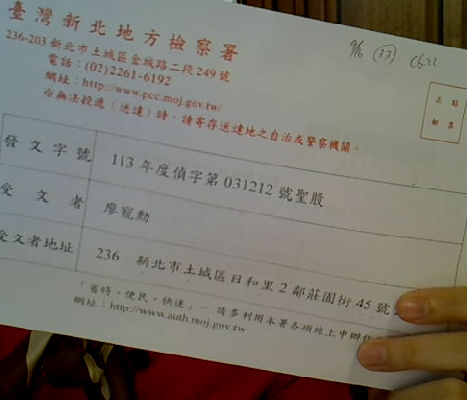 臺灣新北地方檢察署
236-203 新北市土城區金城路二段249號
電話：(02)2261-6192
網址：http://www.pcc.moj.gov.tw/
無法投遞（送達）時，請寄存送達地之自治或警察機關。
發文字號 113年度偵字第031212號聖股
受文者 廖寵勳
受文者地址 236 新北市土城區日和里2鄰莊園街45號
「省時、便民、快速」— 請多利用本署各項線上申辦
網址：http://www.auth.moj.gov.tw